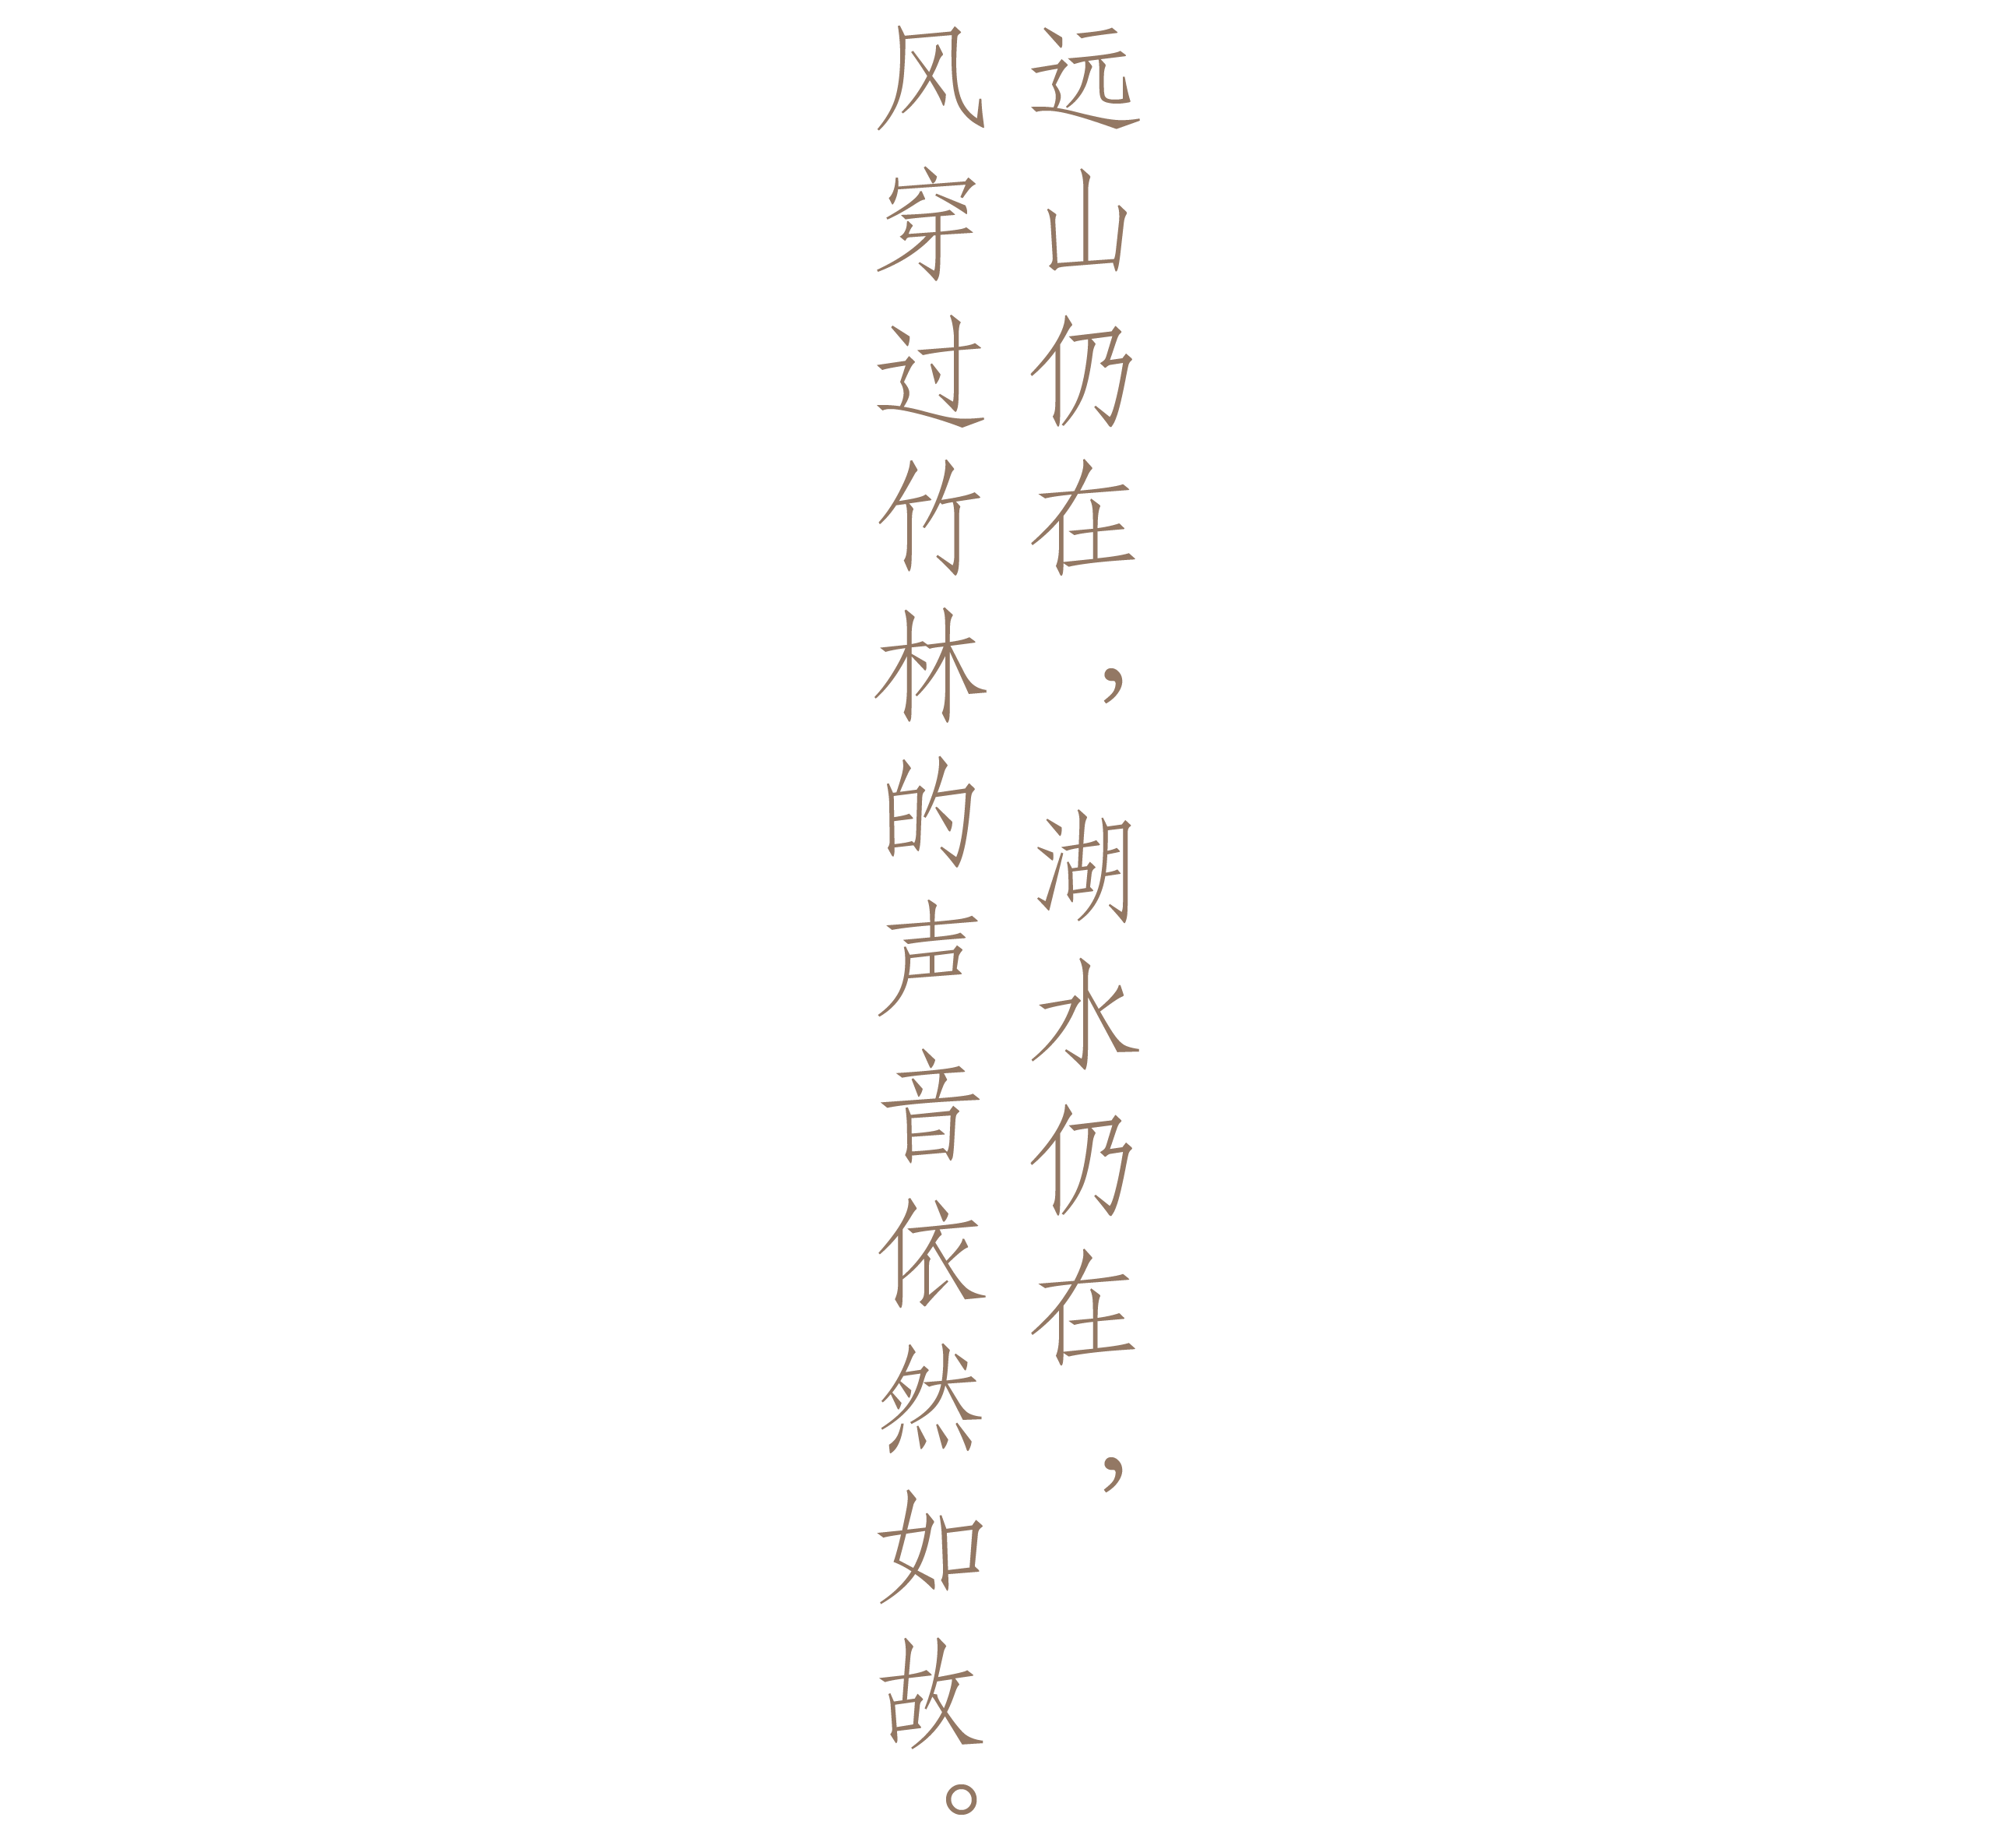 远山仍在，湖水仍在，
风穿过竹林的声音依然如故。